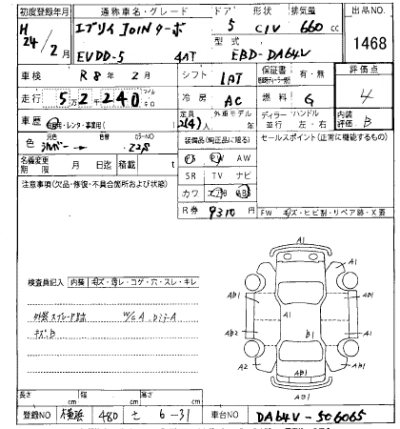 初度登録年月 通称車名・グレード ドア 形状 排気量 出品NO.
H24/2月 エブリイ JOINターボ 5 CIV 660cc 1468
EVDD-5 4AT 型式 EBD-DA64V
車検 R8年2月 シフト LAT 保証書 有・無 評価点
走行 52240 冷房 AC 燃料 G 4
車歴 自家用・レンタ・事業用 定員 2(4)人 外車モデル 年 ディーラー・ハンドル 並行 左・右 内装評価 B
色 元色 シルバー 替色 カラーNO. Z2S 装備品(純正品に限る) セールスポイント(正常に機能するもの)
名義変更期限 月 日迄 積載 t PS PW AW
注意事項(欠品・修復・不具合箇所および状態) SR TV ナビ
カワ エアB ABS
R券 9310円 FW キズ・ヒビ割・リペア跡・X要
A1
A1
AB1 AB1
A1
AB2 B1 A1
A1
AB1
検査員記入 内装 キズ・汚レ・コゲ・穴・スレ・キレ
キズB
長さ cm 幅 cm 高さ cm
登録NO 横浜 480 さ 6-31 車台NO DA64V-506065